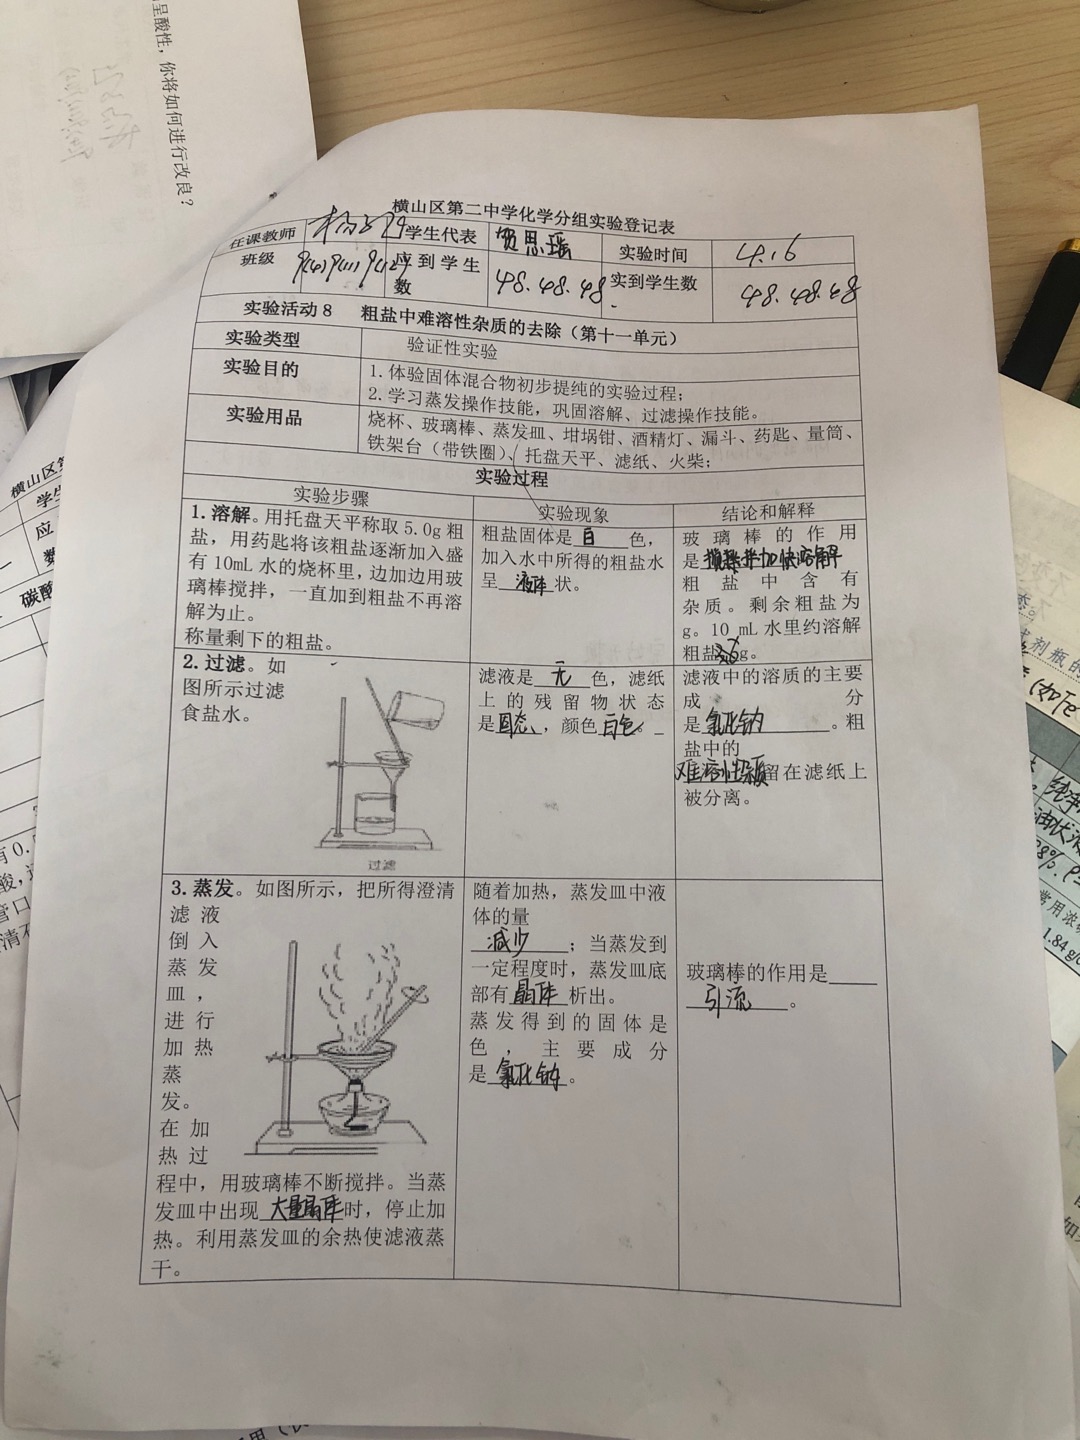 呈酸性，你将如何进行改良？
横山区第二中学化学分组实验登记表
任课教师 学生代表 贺思瑶 实验时间 4.16
班级 9(4) 9(11) 9(12) 应到学生数 48.48.48 实到学生数 48.48.48
实验活动8 粗盐中难溶性杂质的去除（第十一单元）
实验类型 验证性实验
实验目的 1.体验固体混合物初步提纯的实验过程；
2.学习蒸发操作技能，巩固溶解、过滤操作技能。
实验用品 烧杯、玻璃棒、蒸发皿、坩埚钳、酒精灯、漏斗、药匙、量筒、
铁架台（带铁圈）、托盘天平、滤纸、火柴；
实验过程
实验步骤 实验现象 结论和解释
1.溶解。用托盘天平称取5.0g粗
盐，用药匙将该粗盐逐渐加入盛
有10mL水的烧杯里，边加边用玻
璃棒搅拌，一直加到粗盐不再溶
解为止。
称量剩下的粗盐。
粗盐固体是 白 色，
加入水中所得的粗盐水
呈 液体 状。
玻璃棒的作用
是搅拌并加快溶解
粗盐中含有
杂质。剩余粗盐为
g。10 mL水里约溶解
粗盐3.6g。
2.过滤。如
图所示过滤
食盐水。
过滤
滤液是 无 色，滤纸
上的残留物状态
是固态，颜色白色。
滤液中的溶质的主要
成分
是氯化钠。粗
盐中的
难溶性杂质留在滤纸上
被分离。
3.蒸发。如图所示，把所得澄清
滤液
倒入
蒸发
皿，
进行
加热
蒸
发。
在加
热过
程中，用玻璃棒不断搅拌。当蒸
发皿中出现大量晶体时，停止加
热。利用蒸发皿的余热使滤液蒸
干。
随着加热，蒸发皿中液
体的量
减少；当蒸发到
一定程度时，蒸发皿底
部有晶体析出。
蒸发得到的固体是
色，主要成分
是氯化钠。
玻璃棒的作用是
引流。
横山区第
学生
应
数
碳酸
试剂瓶的
纯净
油状液
98%
常用浓
1.84 g/